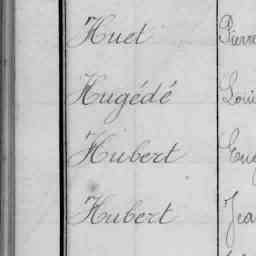 Huet Pierre
Hugédé Loui
Hubert Eug
Hubert Jea